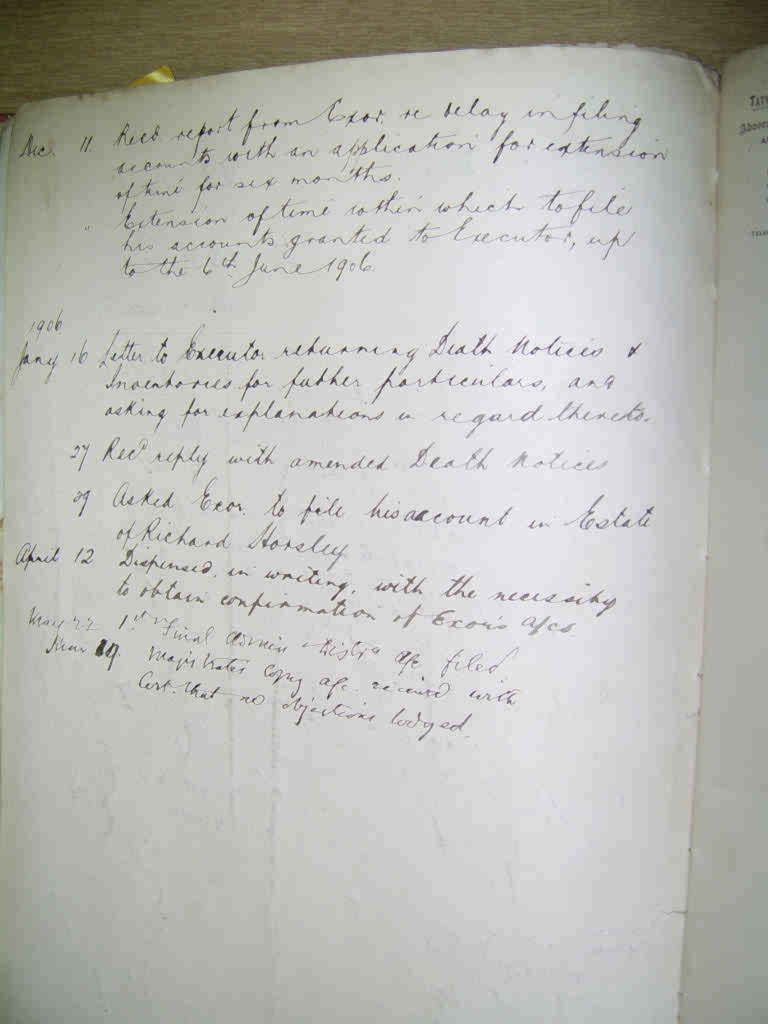 Dec. 11. Recd. report from Exor. re delay in filing
accounts with an application for extension
of time for six months.
" Extension of time within which to file
his accounts granted to Executor, up
to the 6th June 1906
1906
Jany 16 Letter to Executor returning Death Notices &
Inventories for futher particulars, and
asking for explanations in regard thereto.
27 Recd reply with amended Death Notices
29 Asked Exor. to file his account in Estate
of Richard Horsley
April 12 Dispensed, in writing, with the necessity
to obtain confirmation of Exor's a/cs.
May 22 1st & Final Admin & Distrn a/c filed
19 Magistrates Copy a/c. received with
Cert. that no objections lodged.